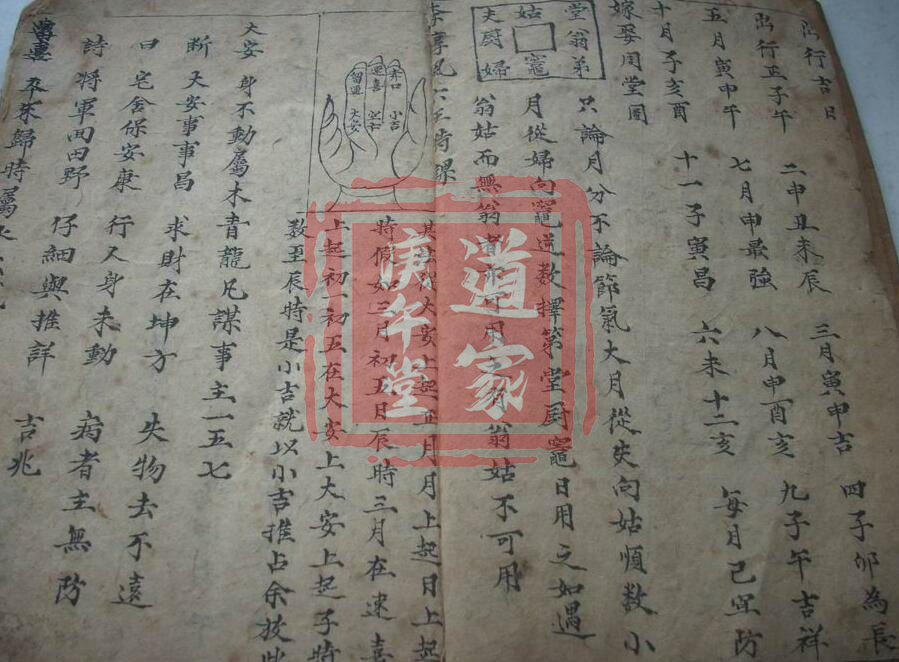 出行吉日
出行正子午 二申丑未辰 三月寅申吉 四子卯為長
五月寅申午 七月申最強 八月申酉亥 九子午吉祥
十月子亥酉 十一子寅昌 六未十二亥 每月已宜防
嫁娶周堂圖
堂翁弟
姑 竈
夫厨婦
只論月分不論節氣大月從夫向姑順数小
月從婦向竈逆数擇第堂厨竈日用之如遇
翁姑而無翁 可用 翁姑不可用
李淳風六壬時課
其法從大安上起正月月上起日日上起
時假如三月初五日辰時三月在速喜
上起初一初五在大安上大安上起子時
数至辰時是小吉就以小吉推占余放此
留連 速喜 赤口
大安 空亡 小吉
大安 身不動屬木青龍凡謀事主一五七
斷 大安事事昌 求財在坤方 失物去不遠
曰 宅舍保安康 行人身未動 病者主無防
詩 將軍囬田野 仔細與推詳
留連 卒未歸時屬水 吉兆
道家
庚午堂